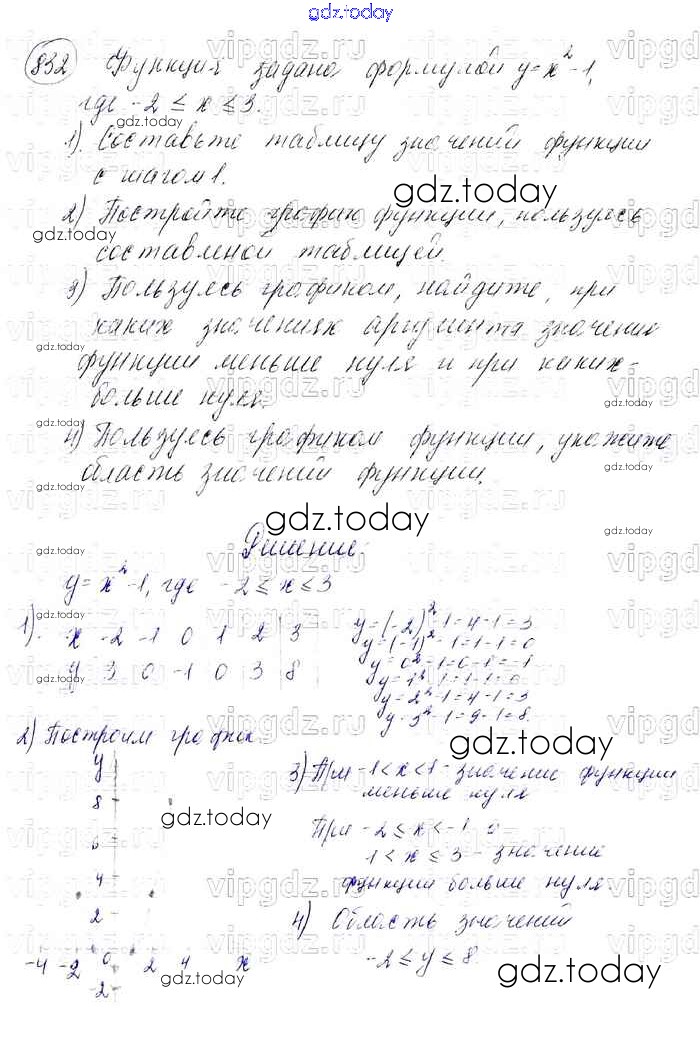 gdz.today
832 Функция задана формулой y=x²-1,
где -2 ≤ x ≤ 3.
gdz.today
1) Составьте таблицу значений функции
с шагом 1.
gdz.today
2) Постройте график функции, пользуясь
gdz.today
составленой таблицей.
3) Пользуясь графиком, найдите, при
каких значениях аргумента значения
gdz.today
функции меньше нуля и при каких -
больше нуля.
gdz.today
4) Пользуясь графиком функции, укажите
область значений функции.
gdz.today
gdz.today
Решение:
y=x²-1, где -2 ≤ x ≤ 3
1) x -2 -1 0 1 2 3
y 3 0 -1 0 3 8
y=(-2)²-1=4-1=3
y=(-1)²-1=1-1=0
y=0²-1=0-1=-1
y=1²-1=1-1=0
y=2²-1=4-1=3
y=3²-1=9-1=8.
2) Построим график
gdz.today
y
8
6
4
2
-4 -2 0 2 4 x
-2
gdz.today
3) При -1<x<1 - значение функции
меньше нуля
При -2≤x<-1 и
1<x≤3 - значение
функции больше нуля
4) Область значений
-2≤y≤8.
gdz.today
vipgdz.ru